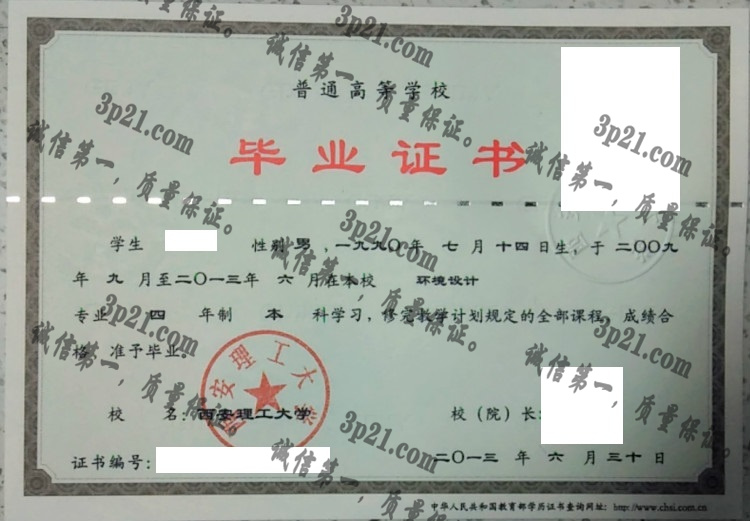 普通高等学校
毕业证书
学生 性别 男 ,一九九〇年 七 月 十四日生,于 二〇〇九
年 九 月至二〇一三年 六 月在本校 环境设计
专业 四 年制 本 科学习,修完教学计划规定的全部课程,成绩合
格,准予毕业。
西安理工大学
校 名:西安理工大学 校(院)长:
证书编号: 二〇一三 年 六 月 三十 日
中华人民共和国教育部学历证书查询网址:http://www.chsi.com.cn
3p21.com
诚信第一,质量保证。
3p21.com
诚信第一,质量保证。
3p21.com
诚信第一,质量保证。
3p21.com
诚信第一,质量保证。
3p21.com
诚信第一,质量保证。
3p21.com
诚信第一,质量保证。
3p21.com
诚信第一,质量保证。